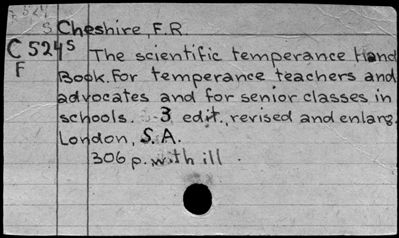 S Cheshire, F.R.
C 524s The scientific temperance Hand
F Book. For temperance teachers and
advocates and for senior classes in
schools. 3 edit., revised and enlarg.
London, S.A.
306 p. with ill.